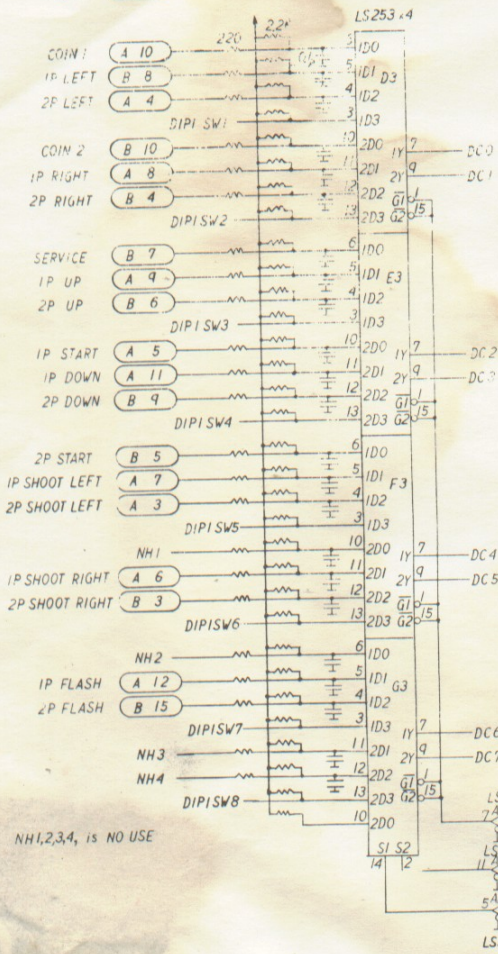 LS253 x4
220 2.2K
COIN 1 A 10 5 1D0
1P LEFT B 8 5 1D1 D3
2P LEFT A 4 4 1D2
DIP1 SW1 3 1D3
COIN 2 B 10 10 2D0 1Y 7 DC0
1P RIGHT A 8 11 2D1 2Y 9 DC1
2P RIGHT B 4 12 2D2 G1 1
DIP1SW2 13 2D3 G2 15
SERVICE B 7 6 1D0
1P UP A 9 5 1D1 E3
2P UP B 6 4 1D2
DIP1 SW3 3 1D3
1P START A 5 10 2D0 1Y 7 DC2
1P DOWN A 11 11 2D1 2Y 9 DC3
2P DOWN B 9 12 2D2 G1 1
DIP1SW4 13 2D3 G2 15
2P START B 5 6 1D0
1P SHOOT LEFT A 7 5 1D1 F3
2P SHOOT LEFT A 3 4 1D2
DIP1SW5 3 1D3
NH1 10 2D0 1Y 7 DC4
1P SHOOT RIGHT A 6 11 2D1 2Y 9 DC5
2P SHOOT RIGHT B 3 12 2D2 G1 1
DIP1SW6 13 2D3 G2 15
NH2 6 1D0
1P FLASH A 12 5 1D1 G3
2P FLASH B 15 4 1D2
DIP1SW7 3 1D3 1Y 7 DC6
NH3 11 2D1 2Y 9 DC7
NH4 12 2D2 G1 1
DIP1SW8 13 2D3 G2 15
10 2D0
NH1,2,3,4, is NO USE
S1 S2
14 2
LS
7
LS
11
5
LS